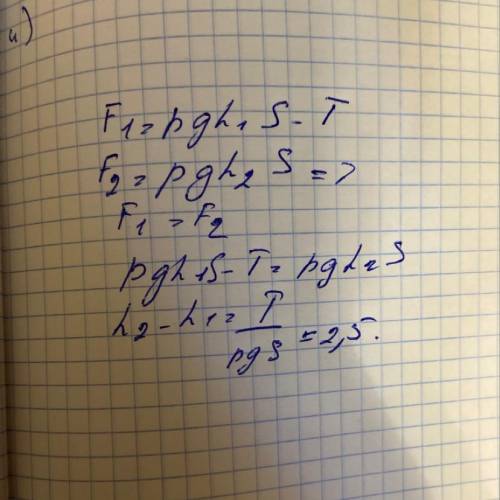 и)
F₁ = ρgh₁ S - T
F₂ = ρgh₂ S =>
F₁ = F₂
ρgh₁S - T = ρgh₂S
h₂ - h₁ = T / ρgS = 2,5.